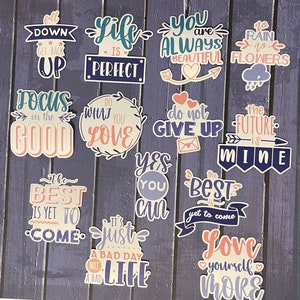 DOWN
GET BACK
UP
Life
IS
PERFECT
YOU
are
ALWAYS
BEAUTIFUL
NO
RAIN
NO
FLOWERS
FOCUS
on the
GOOD
DO
WHAT
YOU
LOVE
do not
GIVE UP
the
FUTURE
IS
MINE
YES
YOU
CAN
IT'S
BEST
IS YET TO
COME
the
Best
is
yet to come
IT'S
Just
A BAD DAY
NOT A
BAD
LIFE
Love
yourself
MORE